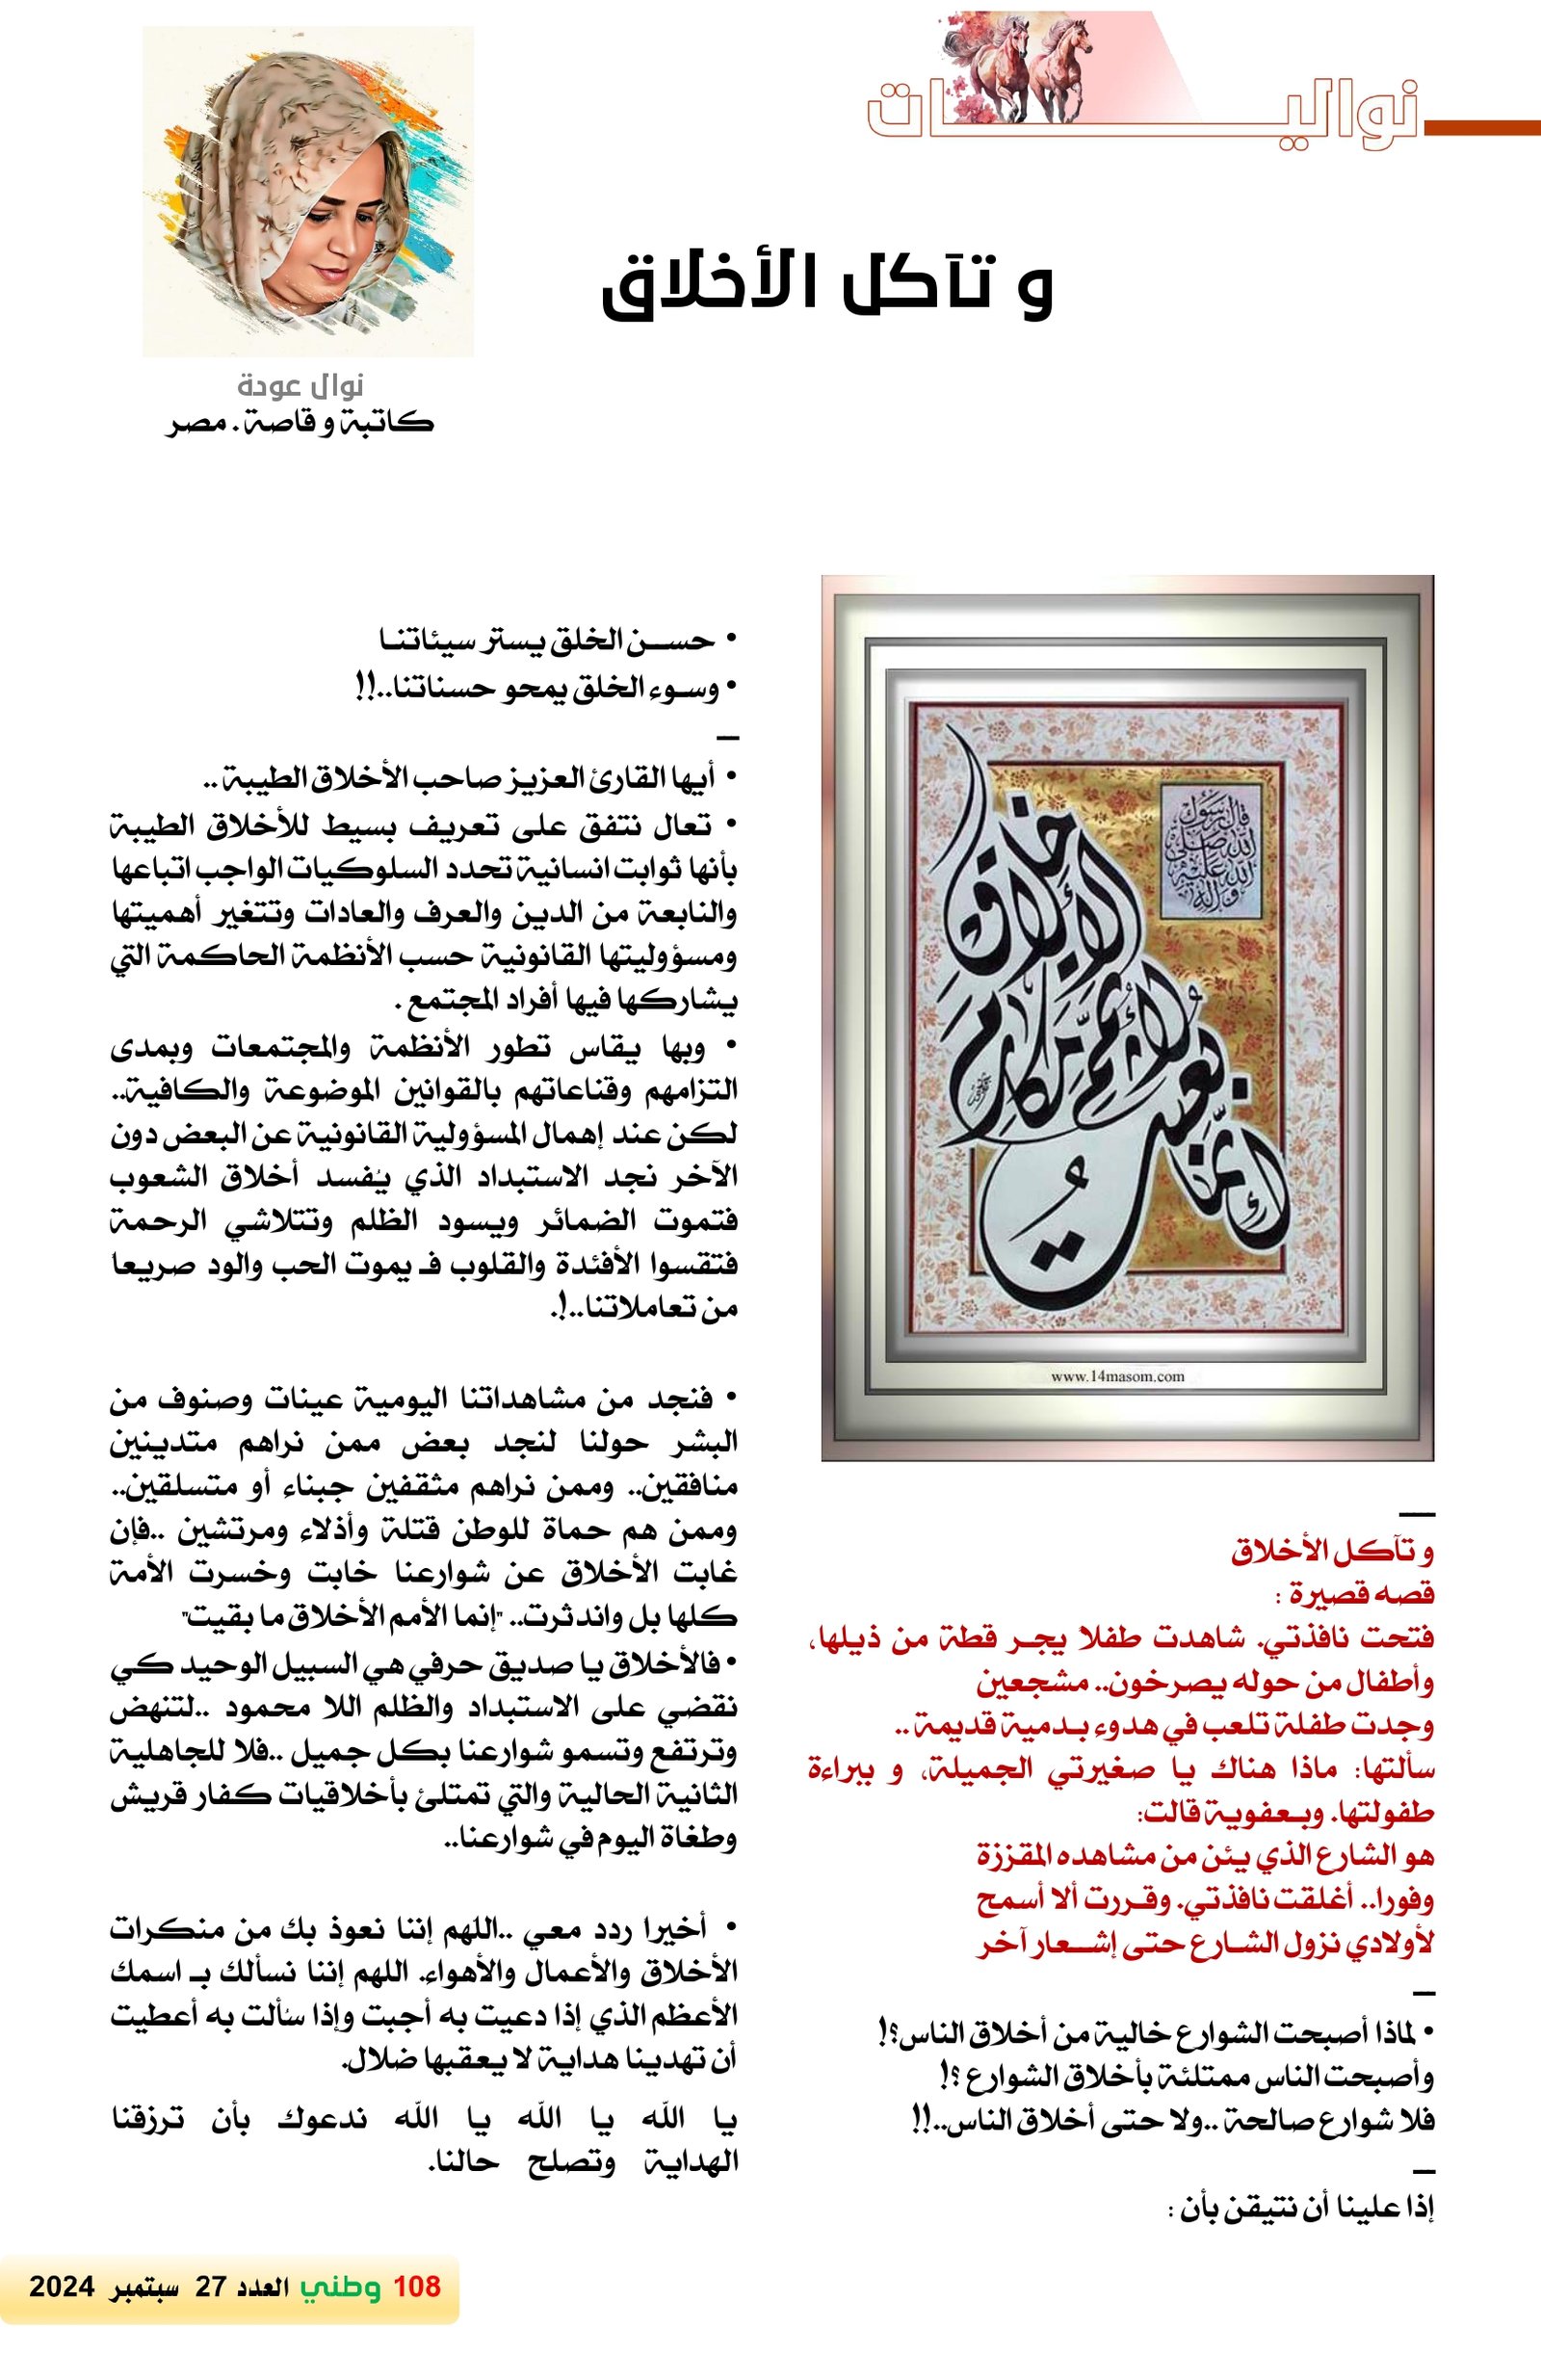 نواليـــــــات
و تآكل الأخلاق
نوال عودة
كاتبة و قاصة . مصر
قال رسول
الله صلى
الله عليه
وآله
إنما بعثت لأتمم مكارم الأخلاق
www.14masom.com
__
و تآكل الأخلاق
قصه قصيرة :
فتحت نافذتي. شاهدت طفلا يجـر قطة من ذيلها،
وأطفال من حوله يصرخون.. مشجعين
وجدت طفلة تلعب في هدوء بـدمية قديمة ..
سألتها: ماذا هناك يا صغيرتي الجميلة، و ببراءة
طفولتها. وبـعفويـة قالت:
هو الشارع الذي يئن من مشاهده المقززة
وفورا.. أغلقت نافذتي. وقـررت ألا أسمح
لأولادي نزول الشـارع حتى إشـــعار آخر
_
• لماذا أصبحت الشوارع خالية من أخلاق الناس؟!
وأصبحت الناس ممتلئة بأخلاق الشوارع ؟!
فلا شوارع صالحة ..ولا حتى أخلاق الناس..!!
_
إذا علينا أن نتيقن بأن :
• حســـن الخلق يستر سيئاتنـا
• وسـوء الخلق يمحو حسناتنا..!!
_
• أيها القارئ العزيز صاحب الأخلاق الطيبة ..
• تعال نتفق على تعريف بسيط للأخلاق الطيبة
بأنها ثوابت انسانية تحدد السلوكيات الواجب اتباعها
والنابعة من الدين والعرف والعادات وتتغير أهميتها
ومسؤوليتها القانونية حسب الأنظمة الحاكمة التي
يشاركها فيها أفراد المجتمع .
• وبها يقاس تطور الأنظمة والمجتمعات وبمدى
التزامهم وقناعاتهم بالقوانين الموضوعة والكافية..
لكن عند إهمال المسؤولية القانونية عن البعض دون
الآخر نجد الاستبداد الذي يُفسد أخلاق الشعوب
فتموت الضمائر ويسود الظلم وتتلاشي الرحمة
فتقسوا الأفئدة والقلوب فـ يموت الحب والود صريعا
من تعاملاتنا..!.
• فنجد من مشاهداتنا اليومية عينات وصنوف من
البشر حولنا لنجد بعض ممن نراهم متدينين
منافقين.. وممن نراهم مثقفين جبناء أو متسلقين..
وممن هم حماة للوطن قتلة وأذلاء ومرتشين ..فإن
غابت الأخلاق عن شوارعنا خابت وخسرت الأمة
كلها بل واندثرت.. "إنما الأمم الأخلاق ما بقيت"
• فالأخلاق يا صديق حرفي هي السبيل الوحيد كي
نقضي على الاستبداد والظلم اللا محمود ..لتنهض
وترتفع وتسمو شوارعنا بكل جميل ..فلا للجاهلية
الثانية الحالية والتي تمتلئ بأخلاقيات كفار قريش
وطغاة اليوم في شوارعنا..
• أخيرا ردد معي ..اللهم إننا نعوذ بك من منكرات
الأخلاق والأعمال والأهواء. اللهم إننا نسألك بـ اسمك
الأعظم الذي إذا دعيت به أجبت وإذا سُألت به أعطيت
أن تهدينا هداية لا يعقبها ضلال.
يا الله يا الله يا الله ندعوك بأن ترزقنا
الهداية وتصلح حالنا.
108 وطني العدد 27 سبتمبر 2024